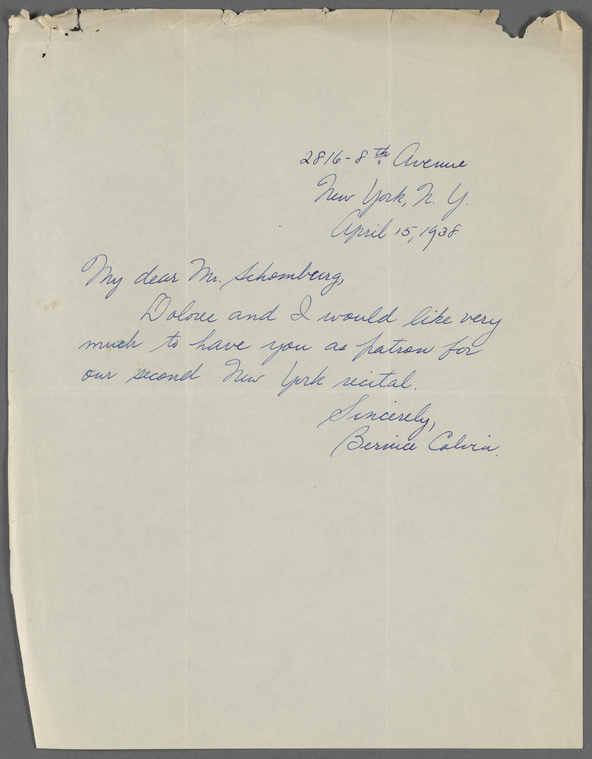 2816-8th Avenue
New York, N. Y.
April 15, 1938
My dear Mr. Schomburg,
Dolove and I would like very
much to have you as patron for
our second New York recital.
Sincerely,
Bernice Calvin.